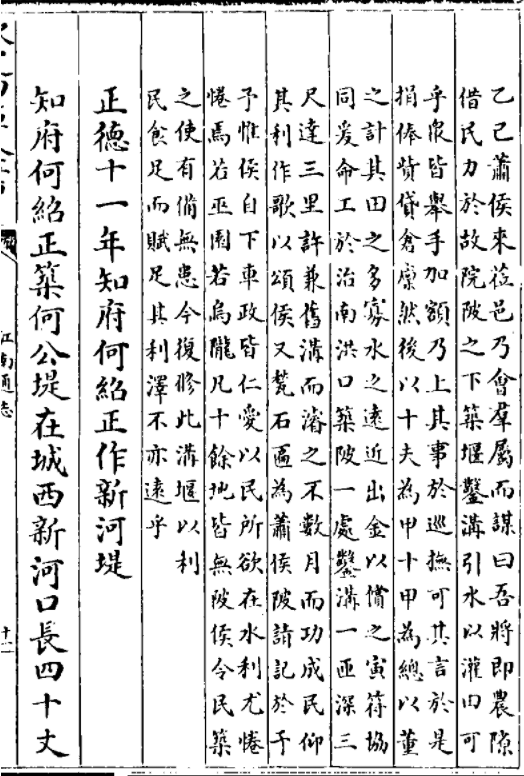 乙巳蕭侯來蒞邑乃會羣屬而謀曰吾將即農隙
借民力於故院陂之下築堰鑿溝引水以灌田可
乎衆皆舉手加額乃上其事於巡撫可其言於是
捐俸貲貸倉廩然後以十夫為甲十甲為總以董
之計其田之多寡水之遠近出金以償之寅符協
同爰命工於治南洪口築陂一處鑿溝一匝深三
尺達三里許兼舊溝而濬之不數月而功成民仰
其利作歌以頌侯又甃石匾為蕭侯陂請記於予
予惟侯自下車政皆仁愛以民所欲在水利尤惓
惓焉若巫圉若烏隴凡十餘地皆無陂侯令民築
之使有備無患今復修此溝堰以利
民食足而賦足其利澤不亦遠乎
正德十一年知府何紹正作新河堤
知府何紹正築何公堤在城西新河口長四十丈
江南通志
十二